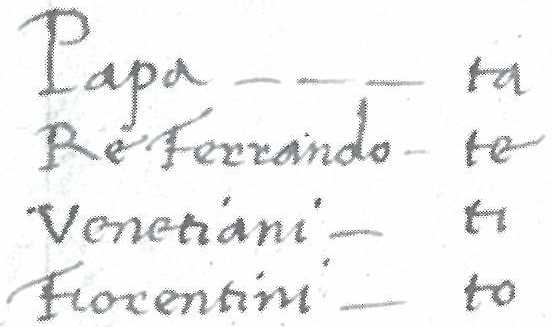 Papa — — — ta
Re Ferrando - te
Venetiani — ti
Fiorentini — to